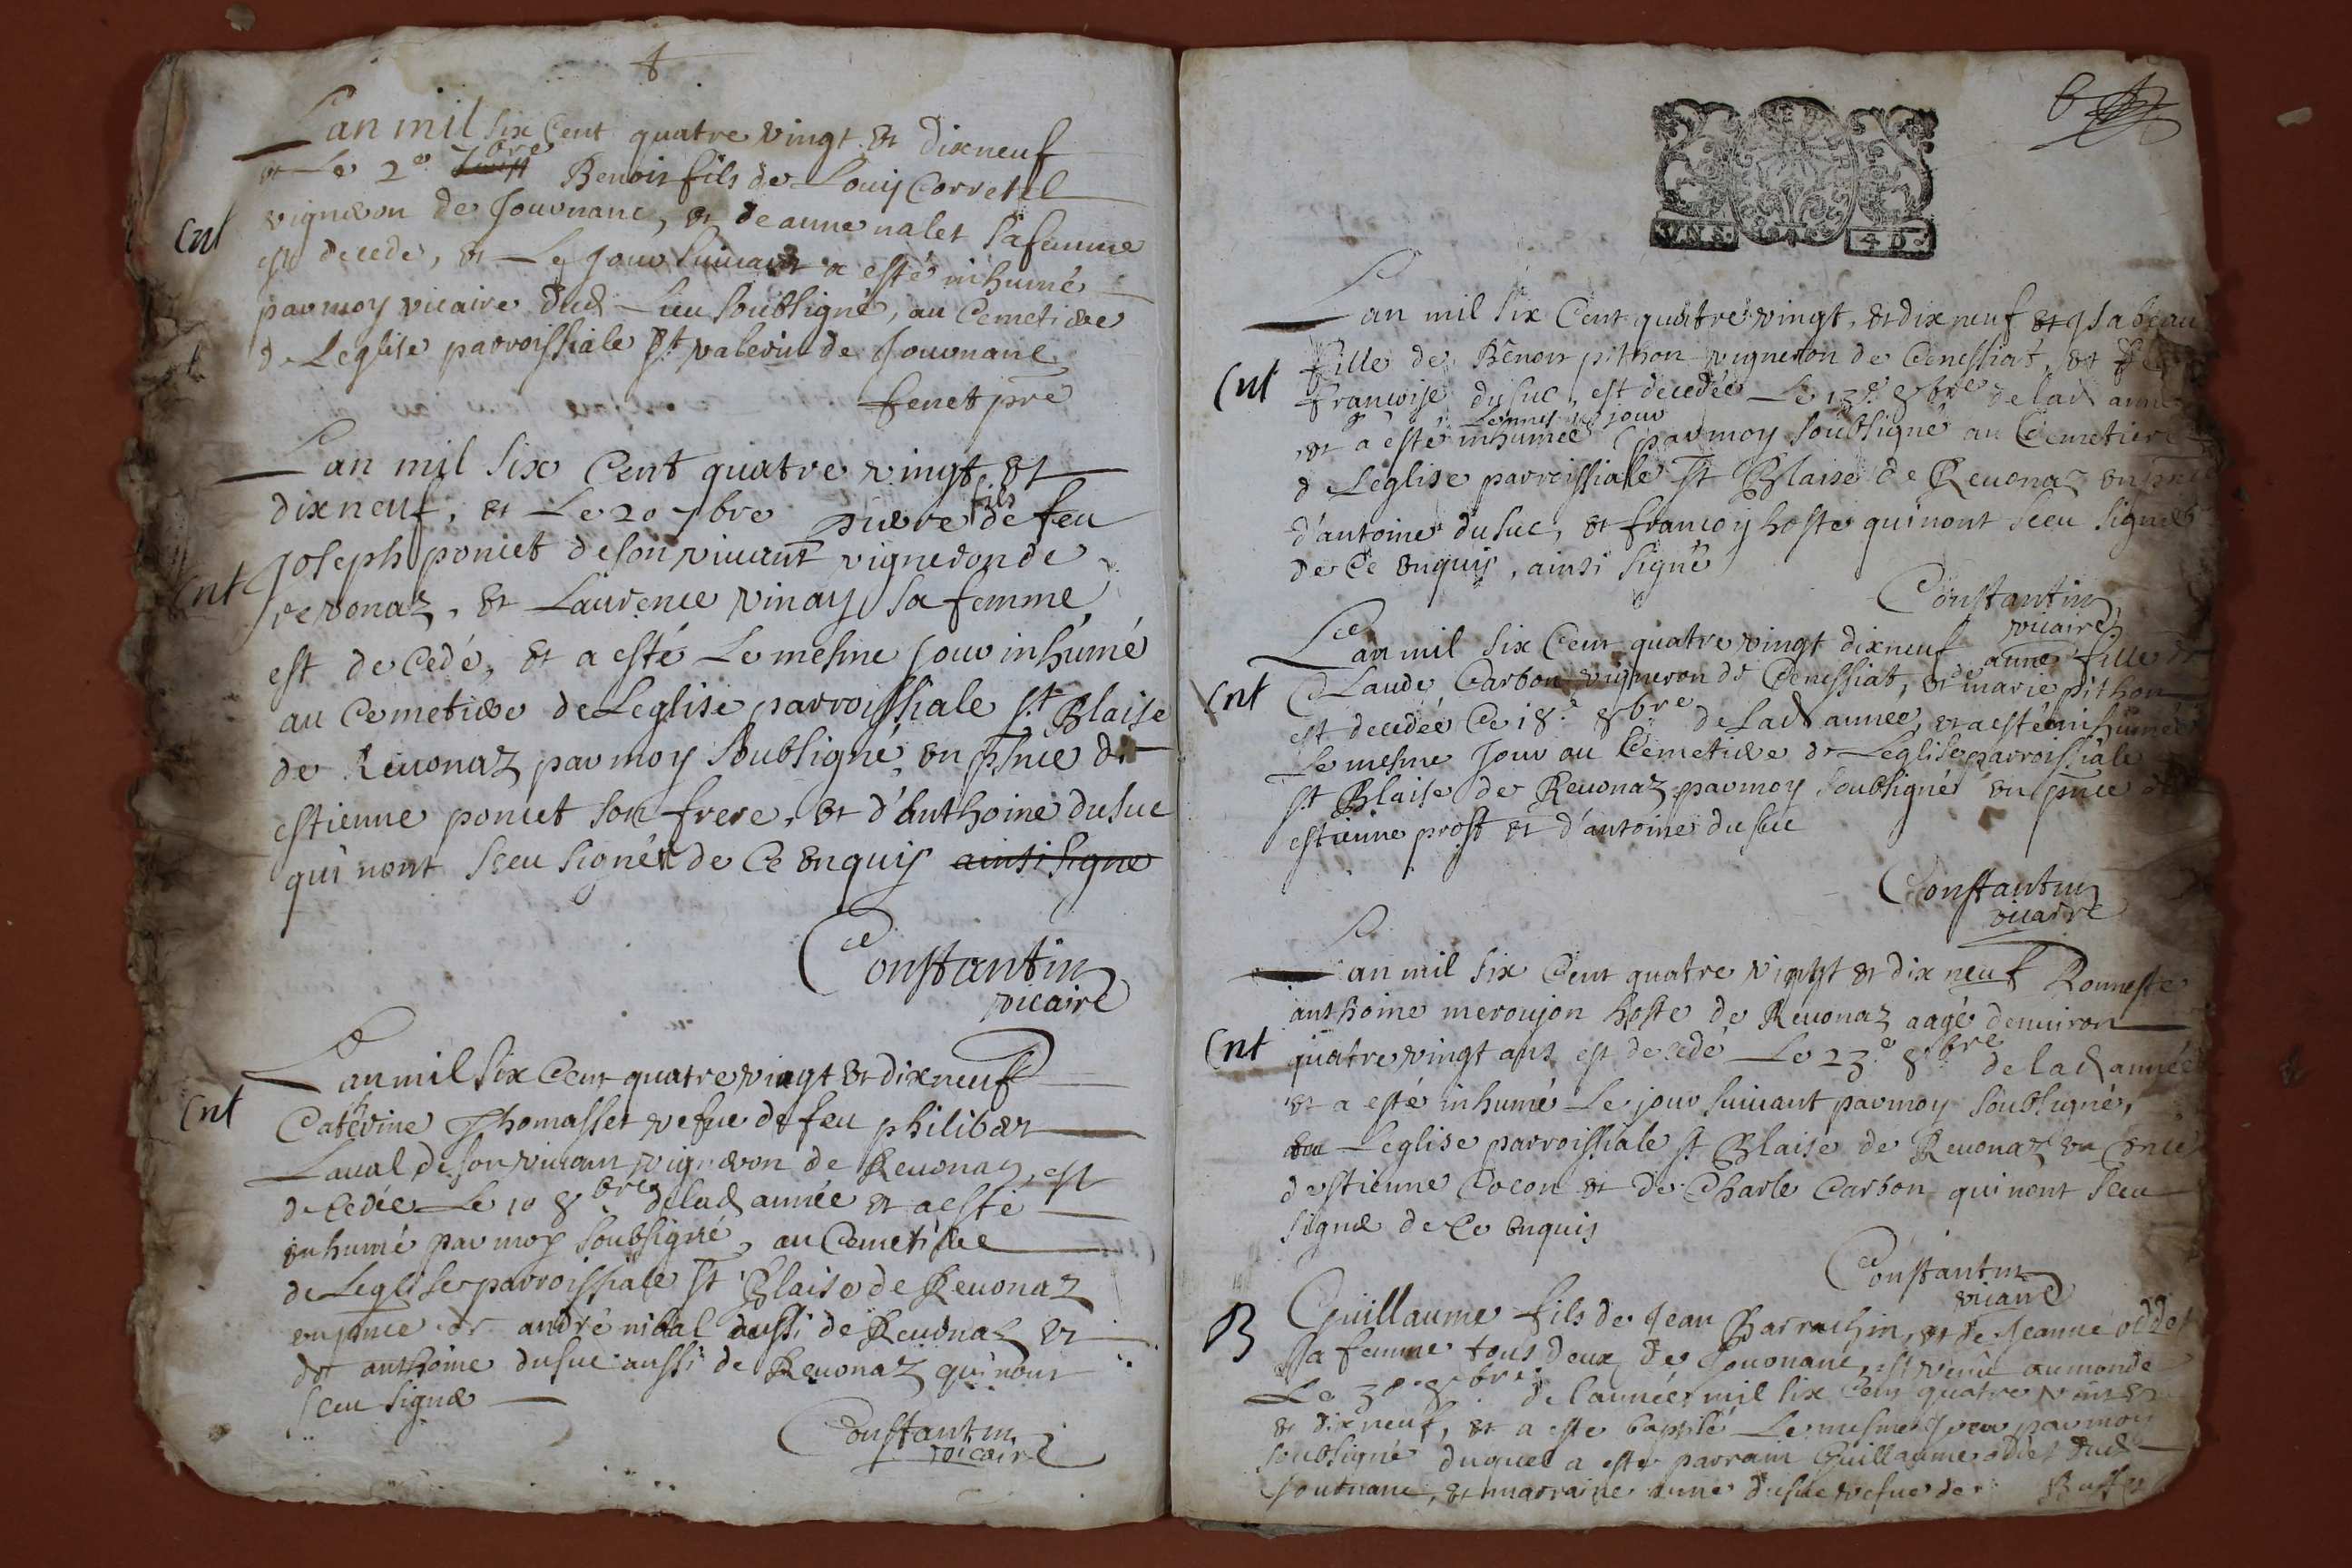 Lan mil six Cent quatre vingt et dixneuf
et Le 2e 7bre Benoit fils de Louis Corretel
vigneron de Jouvnanc, et de anne nalet sa femme
Cnt
est decedé, et Le jour suivant a esté inhumé
par moy vicaire dud Lieu soubsigné, au Cemetiere
de Leglise parroissiale St valerin de Jouvnanc
fenet pre
Lan mil six Cent quatre vingt et
dixneuf, et Le 20 7bre pierre fils de feu
Joseph poncet de son vivant vigneron de
Cnt
revonaz, et Laurence vinay sa femme
est decedé, et a esté Le mesme jour inhumé
au Cemetiere de Leglise parroissiale St Blaise
de Revonaz par moy soubsigné, en pnce de
estienne poncet son frere, et d'anthoine dusuc
qui nont sceu signer de Ce enquis ainsi signe
Constantin
vicaire
Lan mil six Cent quatre vingt et dixneuf
Cnt
Catherine Thomasset vefue de feu philibert
Laval de son vivant vigneron de Revonaz, est
decedée Le 10 8bre de lad année et a esté
inhumé par moy soubsigné, au Cemetiere
de Leglise parroissiale St Blaise de Revonaz
en pnce de andré nidal aussi de Revonaz et
de anthoine dusuc aussi de Revonaz qui nont
sceu signe
Constantin
vicaire
VN S. 4 D.
Lan mil six Cent quatre vingt, et dixneuf et Isabeau
fille de Benoit pithon vigneron de Cenessiat, et
Cnt
francoise dusuc, est decedée Le 13e 8bre de lad anne
Le mesme jour
et a esté inhumée par moy soubsigné au Cemetiere
de Leglise parroissiale St Blaise de Revonaz en
d'antoine dusuc, et francoy hoste qui nont sceu signer
de Ce enquis, ainsi signé
Constantin
vicaire
Lan mil six Cent quatre vingt dixneuf anne fille de
Cnt
Claude Carbon vigneron de Cenessiat, et de marie pithon
est decedée Ce 18e 8bre de Lad année, et a esté inhumée
Le mesme Jour au Cemetiere de Leglise parroissiale
St Blaise de Revonaz par moy soubsigné en pnce de
estienne prost et d'antoine dusuc
Constantin
vicaire
Lan mil six Cent quatre vingt et dix neuf honneste
anthoine meroujon hoste de Revonaz aagé denviron
Cnt
quatre vingt ans est decedé Le 23e 8bre de lad année
et a esté inhumé Le jour suivant par moy soubsigné,
Leglise parroissiale St Blaise de Revonaz en pnce
destienne Cocon et de Charle Carbon qui nont sceu
signe de Ce enquis
Constantin
vicaire
B
Guillaume fils de Jean Barrachin, et de Jeanne oddet
sa femme tous deux de Jouvnanc, est venu au monde
Le 8bre de l'année mil six Cent quatre vingt
et dixneuf, et a esté baptisé Le mesme Jour par moy
soubsigné duquel a esté parrain Guillaume oddet dud
Jouvnanc, et marraine anne dusuc vefue de